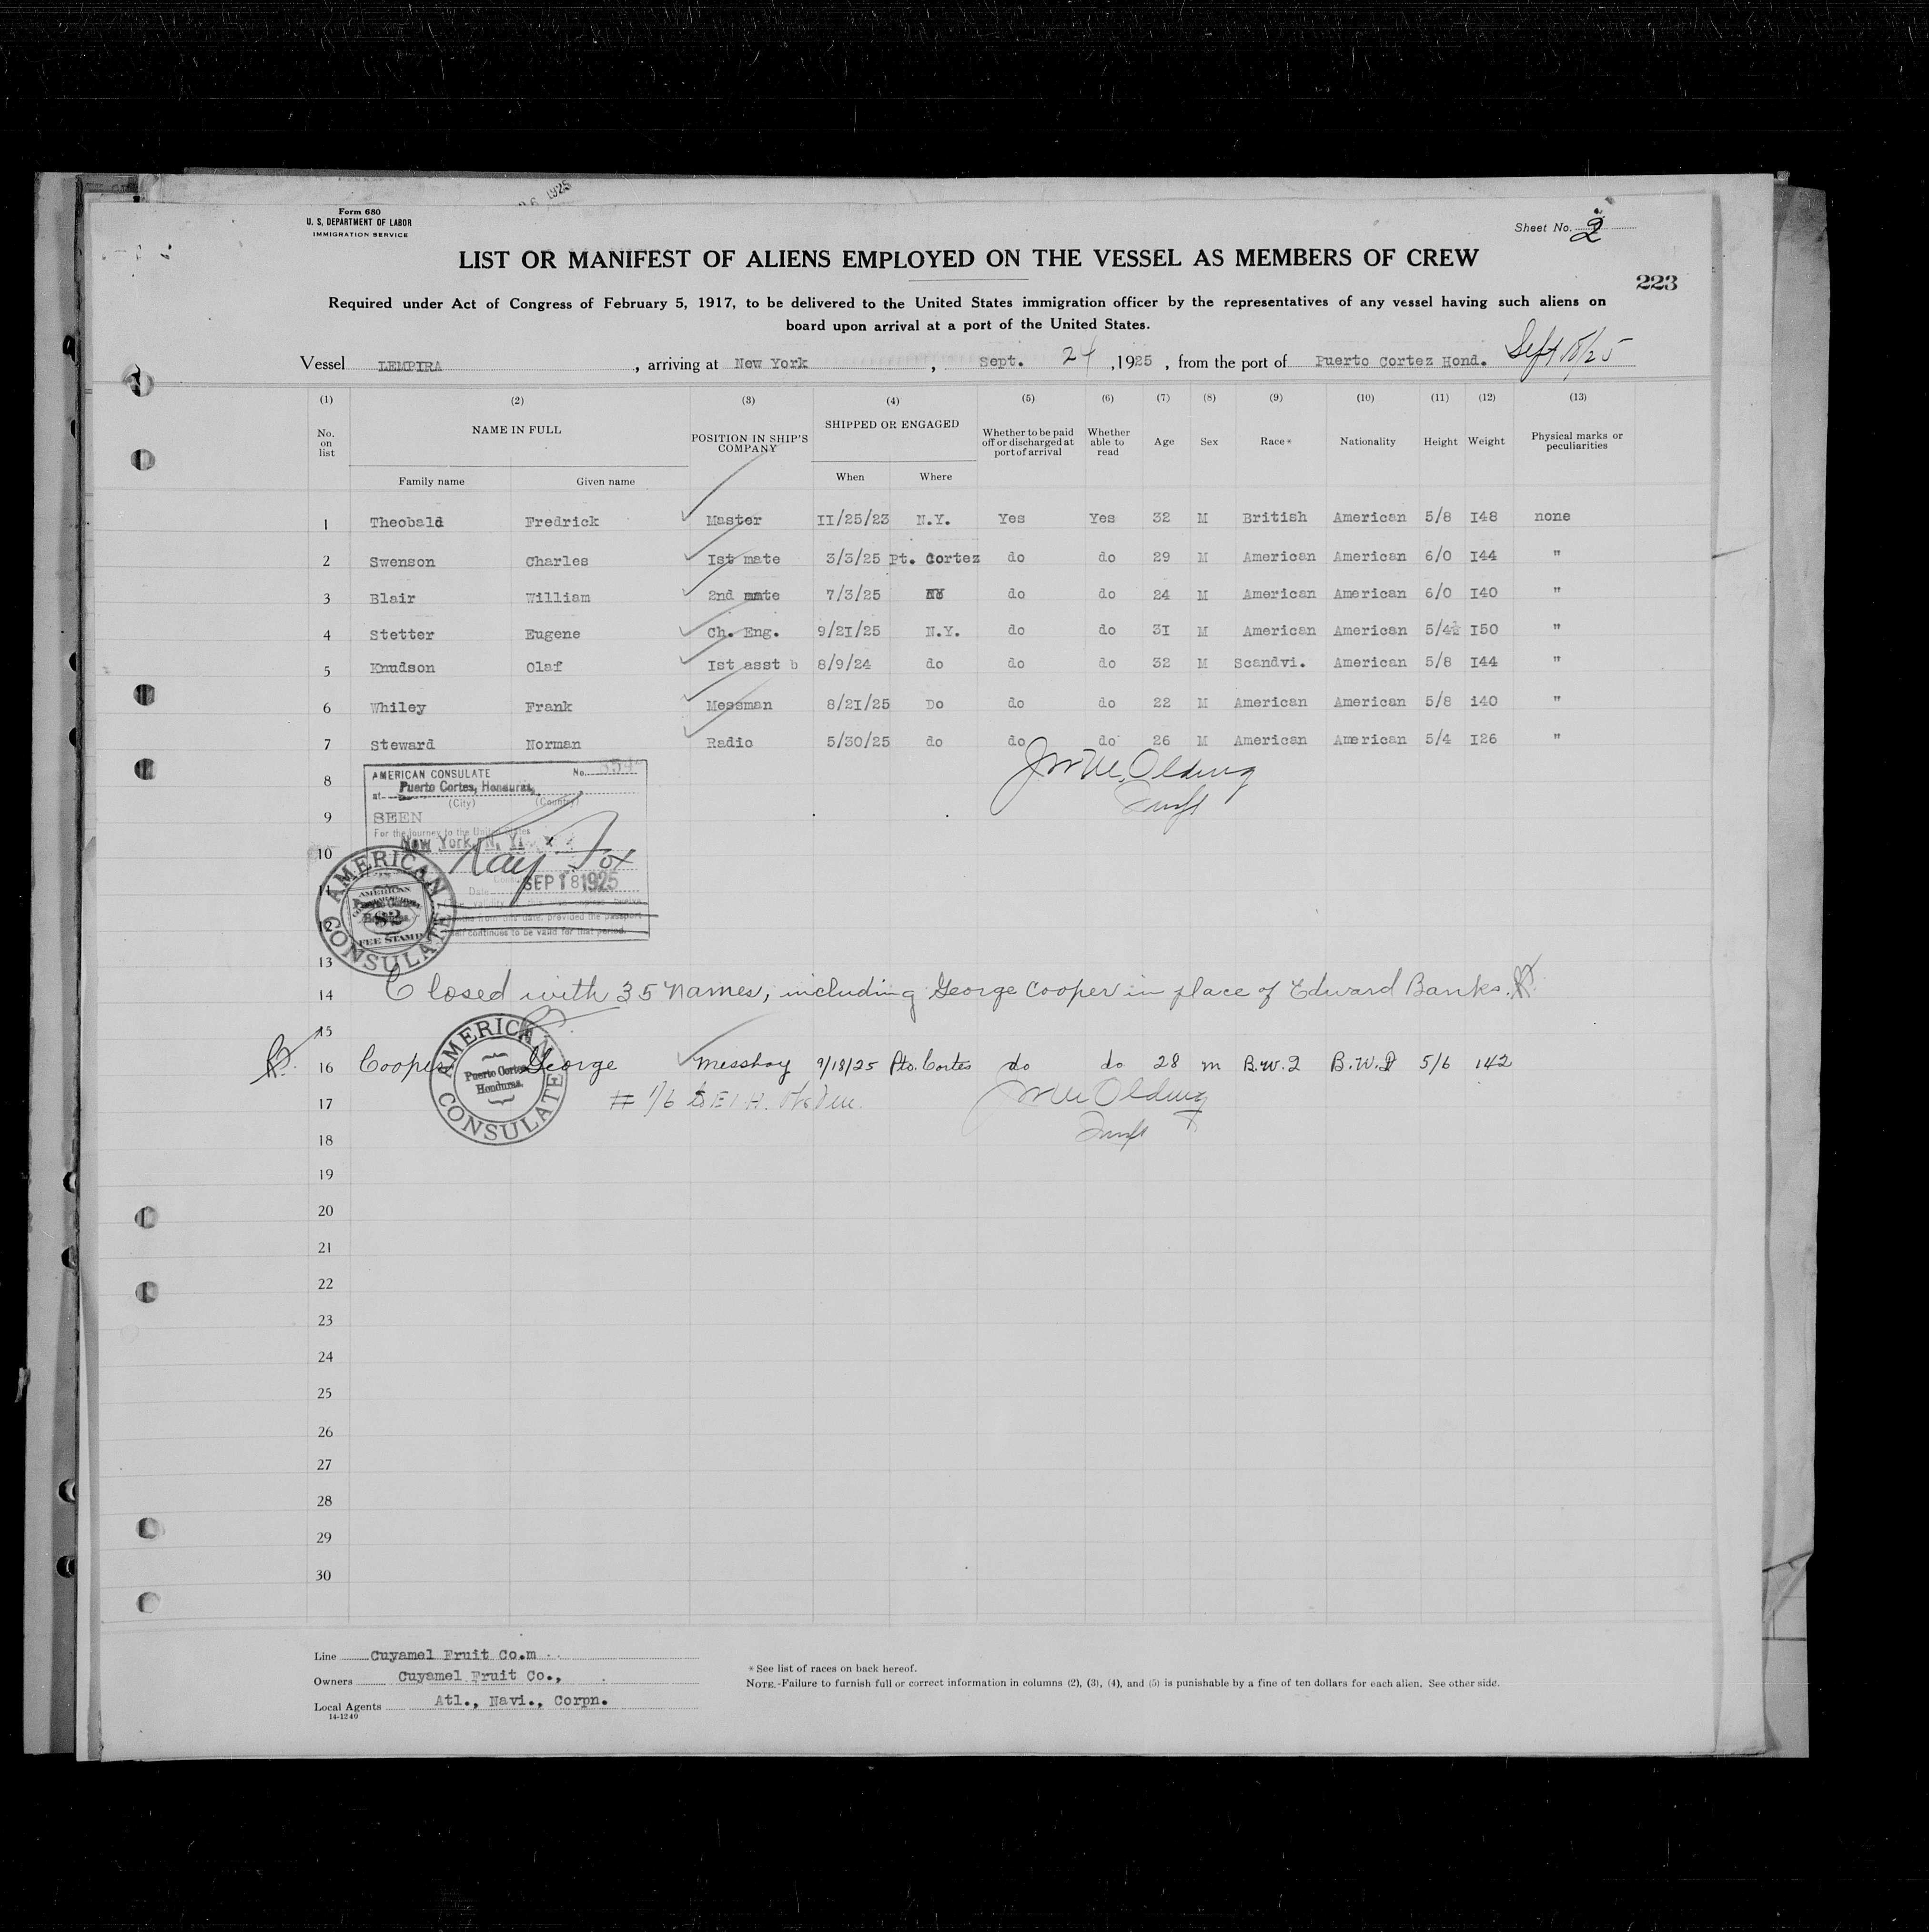 1925
Form 680
U. S. DEPARTMENT OF LABOR
IMMIGRATION SERVICE
Sheet No. 2
LIST OR MANIFEST OF ALIENS EMPLOYED ON THE VESSEL AS MEMBERS OF CREW
223
Required under Act of Congress of February 5, 1917, to be delivered to the United States immigration officer by the representatives of any vessel having such aliens on
board upon arrival at a port of the United States.
Vessel LEMPIRA, arriving at New York, Sept. 24, 1925, from the port of Puerto Cortez Hond. Sept 18/25
(1) (2) (3) (4) (5) (6) (7) (8) (9) (10) (11) (12) (13)
No. on list NAME IN FULL POSITION IN SHIP'S COMPANY SHIPPED OR ENGAGED Whether to be paid off or discharged at port of arrival Whether able to read Age Sex Race* Nationality Height Weight Physical marks or peculiarities
Family name Given name When Where
1 Theobald Fredrick Master II/25/23 N.Y. Yes Yes 32 M British American 5/8 I48 none
2 Swenson Charles Ist mate 3/3/25 Pt. Cortez do do 29 M American American 6/0 I44 "
3 Blair William 2nd mate 7/3/25 NY do do 24 M American American 6/0 I40 "
4 Stetter Eugene Ch. Eng. 9/2I/25 N.Y. do do 3I M American American 5/4½ I50 "
5 Knudson Olaf Ist asst b 8/9/24 do do do 32 M Scandvi. American 5/8 I44 "
6 Whiley Frank Messman 8/2I/25 Do do do 22 M American American 5/8 i40 "
7 Steward Norman Radio 5/30/25 do do do 26 M American American 5/4 I26 "
8
AMERICAN CONSULATE No.
at Puerto Cortes, Honduras,
(City) (Country)
9
SEEN
For the journey to the United States
New York, N. Y.
10
Ray Fox
11
Date SEP 18 1925
12
months from this date, provided the passport
self continues to be valid for that period.
AMERICAN CONSULATE
AMERICAN
$2
FEE STAMP
13
14 Closed with 35 names, including George Cooper in place of Edward Banks.
15
16 Cooper George Messboy 9/18/25 Pto. Cortes do do 28 m B.W.I B.W.I 5/6 142
AMERICAN CONSULATE
Puerto Cortes,
Honduras.
17
18
19
20
21
22
23
24
25
26
27
28
29
30
Line Cuyamel Fruit Co.m
Owners Cuyamel Fruit Co.,
Local Agents Atl., Navi., Corpn.
14-1240
* See list of races on back hereof.
NOTE.-Failure to furnish full or correct information in columns (2), (3), (4), and (5) is punishable by a fine of ten dollars for each alien. See other side.